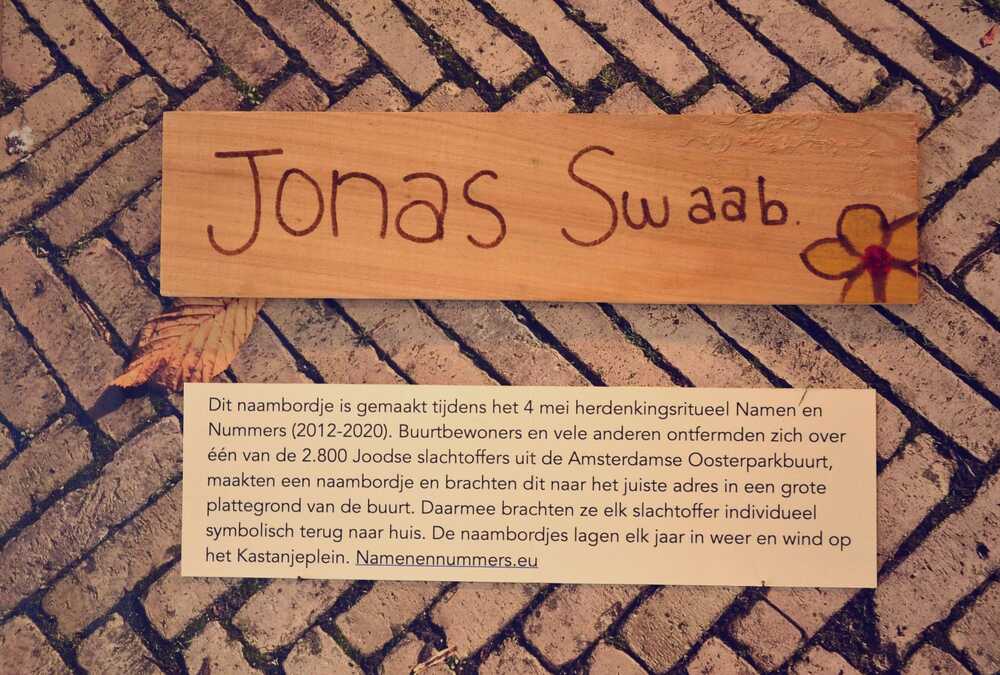 Jonas Swaab.
Dit naambordje is gemaakt tijdens het 4 mei herdenkingsritueel Namen en
Nummers (2012-2020). Buurtbewoners en vele anderen ontfermden zich over
één van de 2.800 Joodse slachtoffers uit de Amsterdamse Oosterparkbuurt,
maakten een naambordje en brachten dit naar het juiste adres in een grote
plattegrond van de buurt. Daarmee brachten ze elk slachtoffer individueel
symbolisch terug naar huis. De naambordjes lagen elk jaar in weer en wind op
het Kastanjeplein. Namenennummers.eu